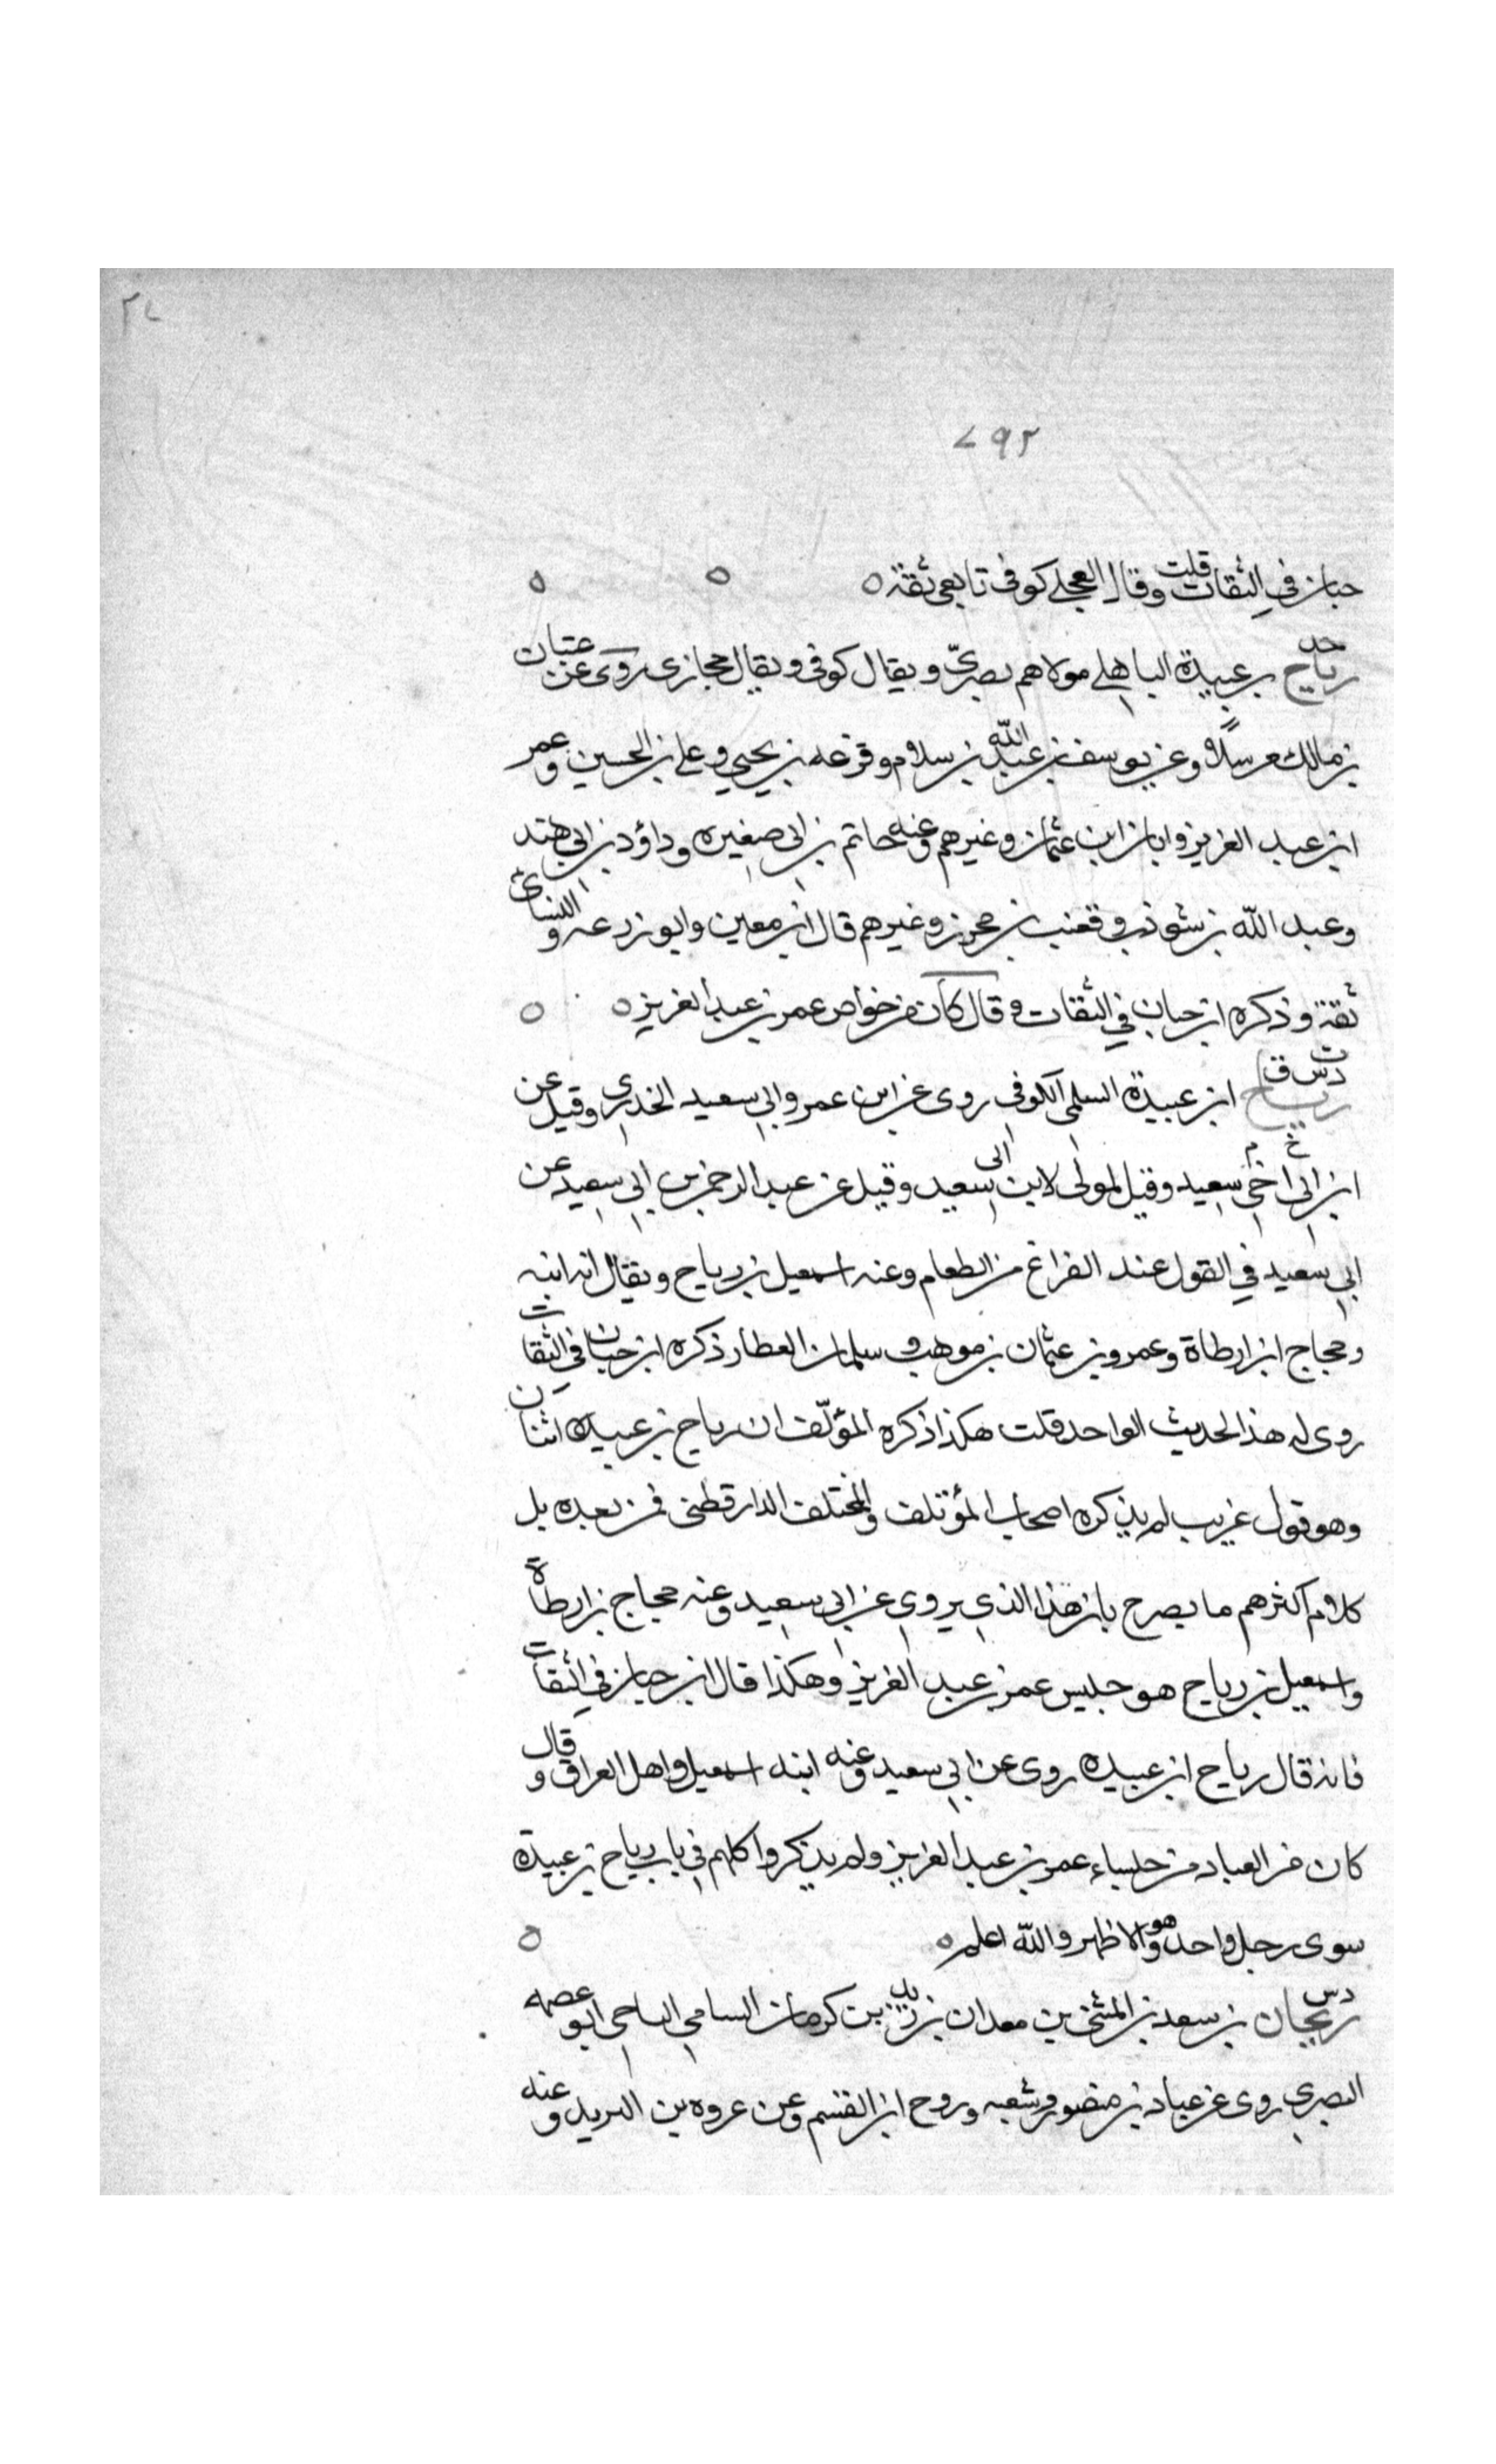 ٢٧
٧٩٢
حبان في الثقات قلت وقال العجلي كوفي تابعي ثقة ٥
خد رياح بن عبيدة الباهلي مولاهم بصريّ ويقال كوفي ويقال حجازى روى عن عتبان
بن مالك مرسلاً وعن يوسف بن عبد الله بن سلام وقزعه بن يحيي وعلي بن الحسين وعمر
ابن عبد العزيز وابان ابن عثمان وغيرهم وعنه حاتم بن ابي صغيره وداؤد بن ابي هند
وعبد الله بن شوذب وقعنب بن محرز وغيرهم قال ابن معين وابو زرعه والنسائ
ثقة وذكره ابن حبان في الثقات وقال كان من خواص عمر بن عبد العزيز ٥
د ت س ق رياح ابن عبيدة السلمي الكوفي روى عن ابن عمر وابي سعيد الخدري وقيل عن
ابن ابي اخي سعيد وقيل لمولى لابن ابى سعيد وقيل عن عبد الرحمن بن ابي سعيد عن
ابي سعيد في القول عند الفراغ من الطعام وعنه اسمعيل بن رياح ويقال انه ابنه
وحجاج ابن ارطاة وعمرو بن عثمان بن موهب وسلمان العطار ذكره ابن حبان في الثقات
روى له هذا الحديث الواحد قلت هكذا ذكره المؤلّف ان رياح بن عبيده اثنان
وهو قول غريب لم يذكره اصحاب المؤتلف والمختلف الدارقطنى فمن بعده بل
كلام اكثرهم ما يصرح بان هذا الذي يروي عن ابي سعيد وعنه حجاج بن ارطاة
واسمعيل بن رياح هو جليس عمر بن عبد العزيز وهكذا قال ابن حبان في الثقات
فانه قال رياح ابن عبيده روى عن ابي سعيد وعنه ابنه اسمعيل واهل العراق وقال
كان من العباد من جلساء عمر بن عبد العزيز ولم يذكروا كلهم في باب رياح بن عبيدة
سوى رجل واحد وهو الاظهر والله اعلم ٥
د س ريحان بن سعيد بن المثنى بن معدان بن زيد بن كرمان السامي الناجي ابو عصمه
البصري روى عن عباد بن منصور وشعبه وروح ابن القسم وعن عروه بن البريد وعنه